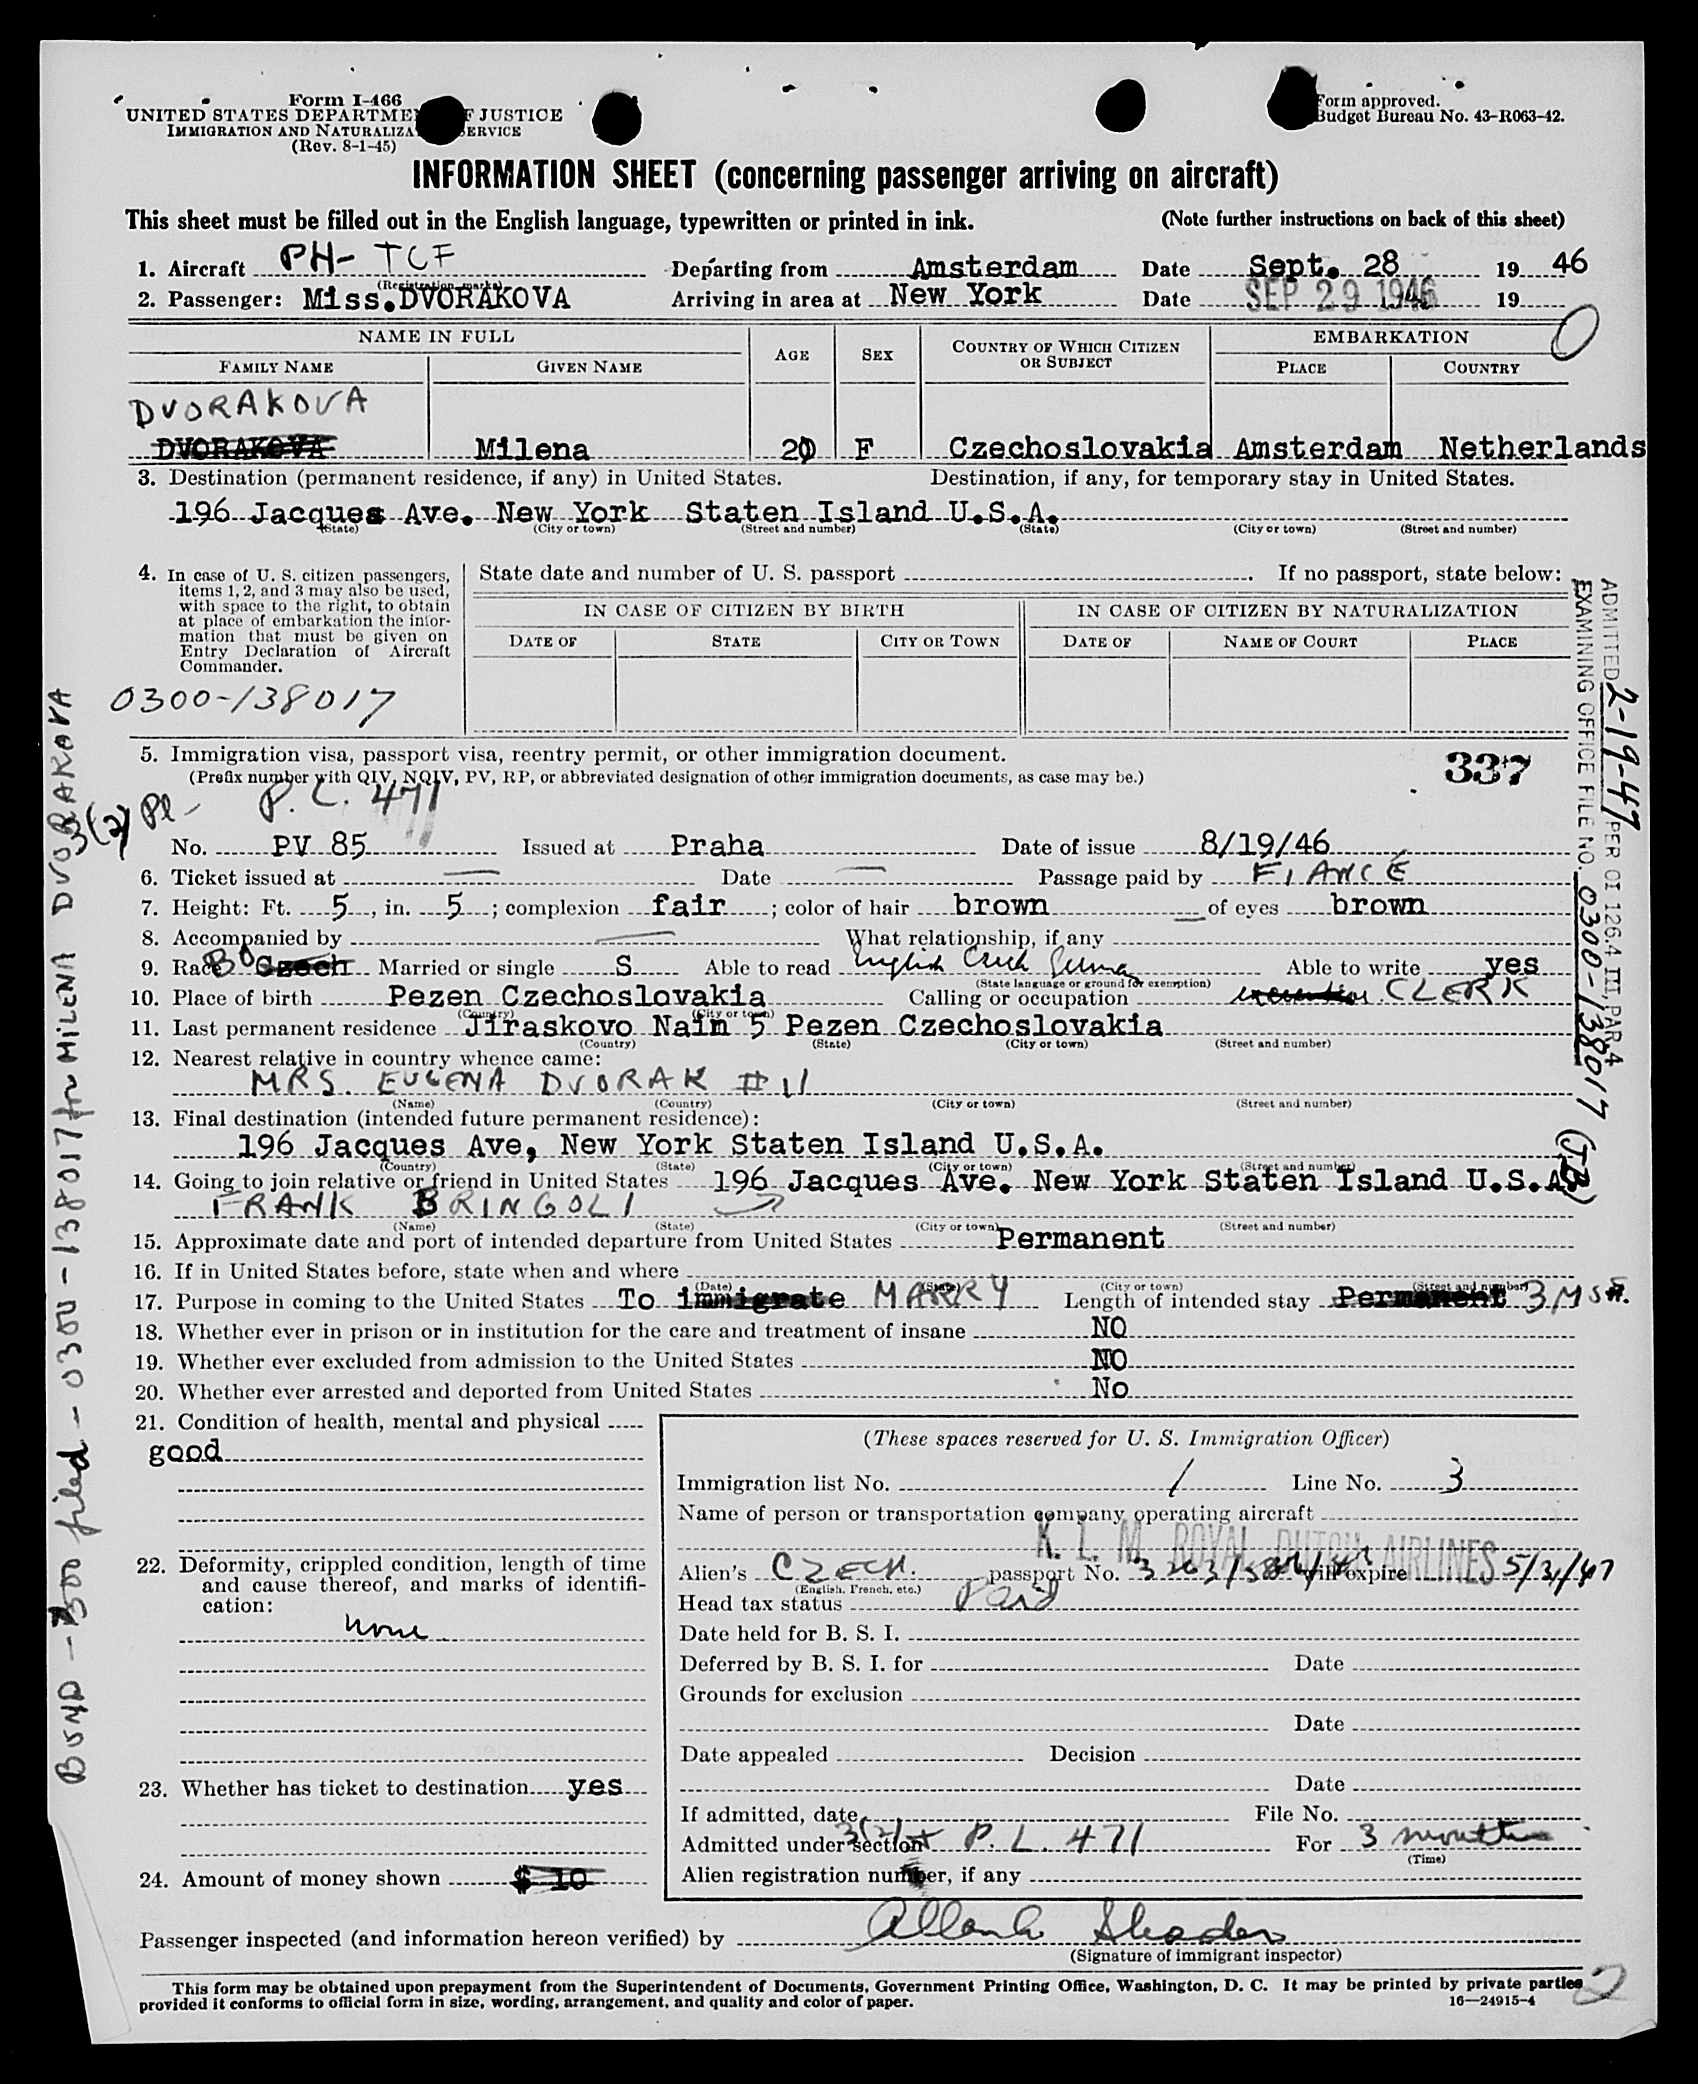 Form I-466
UNITED STATES DEPARTMENT OF JUSTICE
IMMIGRATION AND NATURALIZATION SERVICE
(Rev. 8-1-45)
Form approved.
Budget Bureau No. 43-R063-42.
INFORMATION SHEET (concerning passenger arriving on aircraft)
This sheet must be filled out in the English language, typewritten or printed in ink. (Note further instructions on back of this sheet)
1. Aircraft PH-TCF Departing from Amsterdam Date Sept. 28 19 46
(Registration marks)
2. Passenger: Miss.DVORAKOVA Arriving in area at New York Date SEP 29 1946 19
NAME IN FULL AGE SEX COUNTRY OF WHICH CITIZEN OR SUBJECT EMBARKATION
FAMILY NAME GIVEN NAME PLACE COUNTRY
DVORAKOVA
DVORAKOVA Milena 20 F Czechoslovakia Amsterdam Netherlands
3. Destination (permanent residence, if any) in United States. Destination, if any, for temporary stay in United States.
196 Jacques Ave. New York Staten Island U.S.A.
(State) (City or town) (Street and number) (State) (City or town) (Street and number)
4. In case of U. S. citizen passengers, items 1, 2, and 3 may also be used, with space to the right, to obtain at place of embarkation the information that must be given on Entry Declaration of Aircraft Commander.
State date and number of U. S. passport . If no passport, state below:
IN CASE OF CITIZEN BY BIRTH IN CASE OF CITIZEN BY NATURALIZATION
DATE OF STATE CITY OR TOWN DATE OF NAME OF COURT PLACE
0300-138017
5. Immigration visa, passport visa, reentry permit, or other immigration document.
(Prefix number with QIV, NQIV, PV, RP, or abbreviated designation of other immigration documents, as case may be.)
337
3(2) Pl- P. L. 471
No. PV 85 Issued at Praha Date of issue 8/19/46
6. Ticket issued at — Date — Passage paid by FIANCÉ
7. Height: Ft. 5, in. 5; complexion fair; color of hair brown of eyes brown
8. Accompanied by — What relationship, if any
9. Race BO Czech Married or single S Able to read English Czech German Able to write yes
(State language or ground for exemption)
10. Place of birth Pezen Czechoslovakia Calling or occupation CLERK
(Country) (City or town)
11. Last permanent residence Jiraskovo Nam 5 Pezen Czechoslovakia
(Country) (State) (City or town) (Street and number)
12. Nearest relative in country whence came:
MRS. EUGENA DVORAK #11
(Name) (Country) (City or town) (Street and number)
13. Final destination (intended future permanent residence):
196 Jacques Ave, New York Staten Island U.S.A.
(Country) (State) (City or town) (Street and number)
14. Going to join relative or friend in United States 196 Jacques Ave. New York Staten Island U.S.A.
FRANK BRINGOLI
(Name) (State) (City or town) (Street and number)
15. Approximate date and port of intended departure from United States Permanent
16. If in United States before, state when and where
(Date) (State) (City or town) (Street and number)
17. Purpose in coming to the United States To immigrate MARRY Length of intended stay Permanent 3 MS
18. Whether ever in prison or in institution for the care and treatment of insane NO
19. Whether ever excluded from admission to the United States NO
20. Whether ever arrested and deported from United States No
21. Condition of health, mental and physical
good
22. Deformity, crippled condition, length of time and cause thereof, and marks of identification:
None
23. Whether has ticket to destination yes
24. Amount of money shown $ 10
(These spaces reserved for U. S. Immigration Officer)
Immigration list No. 1 Line No. 3
Name of person or transportation company operating aircraft
K. L. M. ROYAL DUTCH AIRLINES
Alien's CZECH. passport No. will expire 5/31/47
(English, French, etc.)
Head tax status Paid
Date held for B. S. I.
Deferred by B. S. I. for Date
Grounds for exclusion
Date
Date appealed Decision
Date
If admitted, date File No.
Admitted under section 3(2) + P. L. 471 For 3 months
(Time)
Alien registration number, if any
Passenger inspected (and information hereon verified) by
(Signature of immigrant inspector)
This form may be obtained upon prepayment from the Superintendent of Documents, Government Printing Office, Washington, D. C. It may be printed by private parties
provided it conforms to official form in size, wording, arrangement, and quality and color of paper. 16—24915-4
2
BOND - 500 filed - 0300-138017 for MILENA DVORAKOVA
ADMITTED 2-19-47 PER OI 126.4 III, PAR 4
EXAMINING OFFICE FILE NO. 0300-138017 (JB)